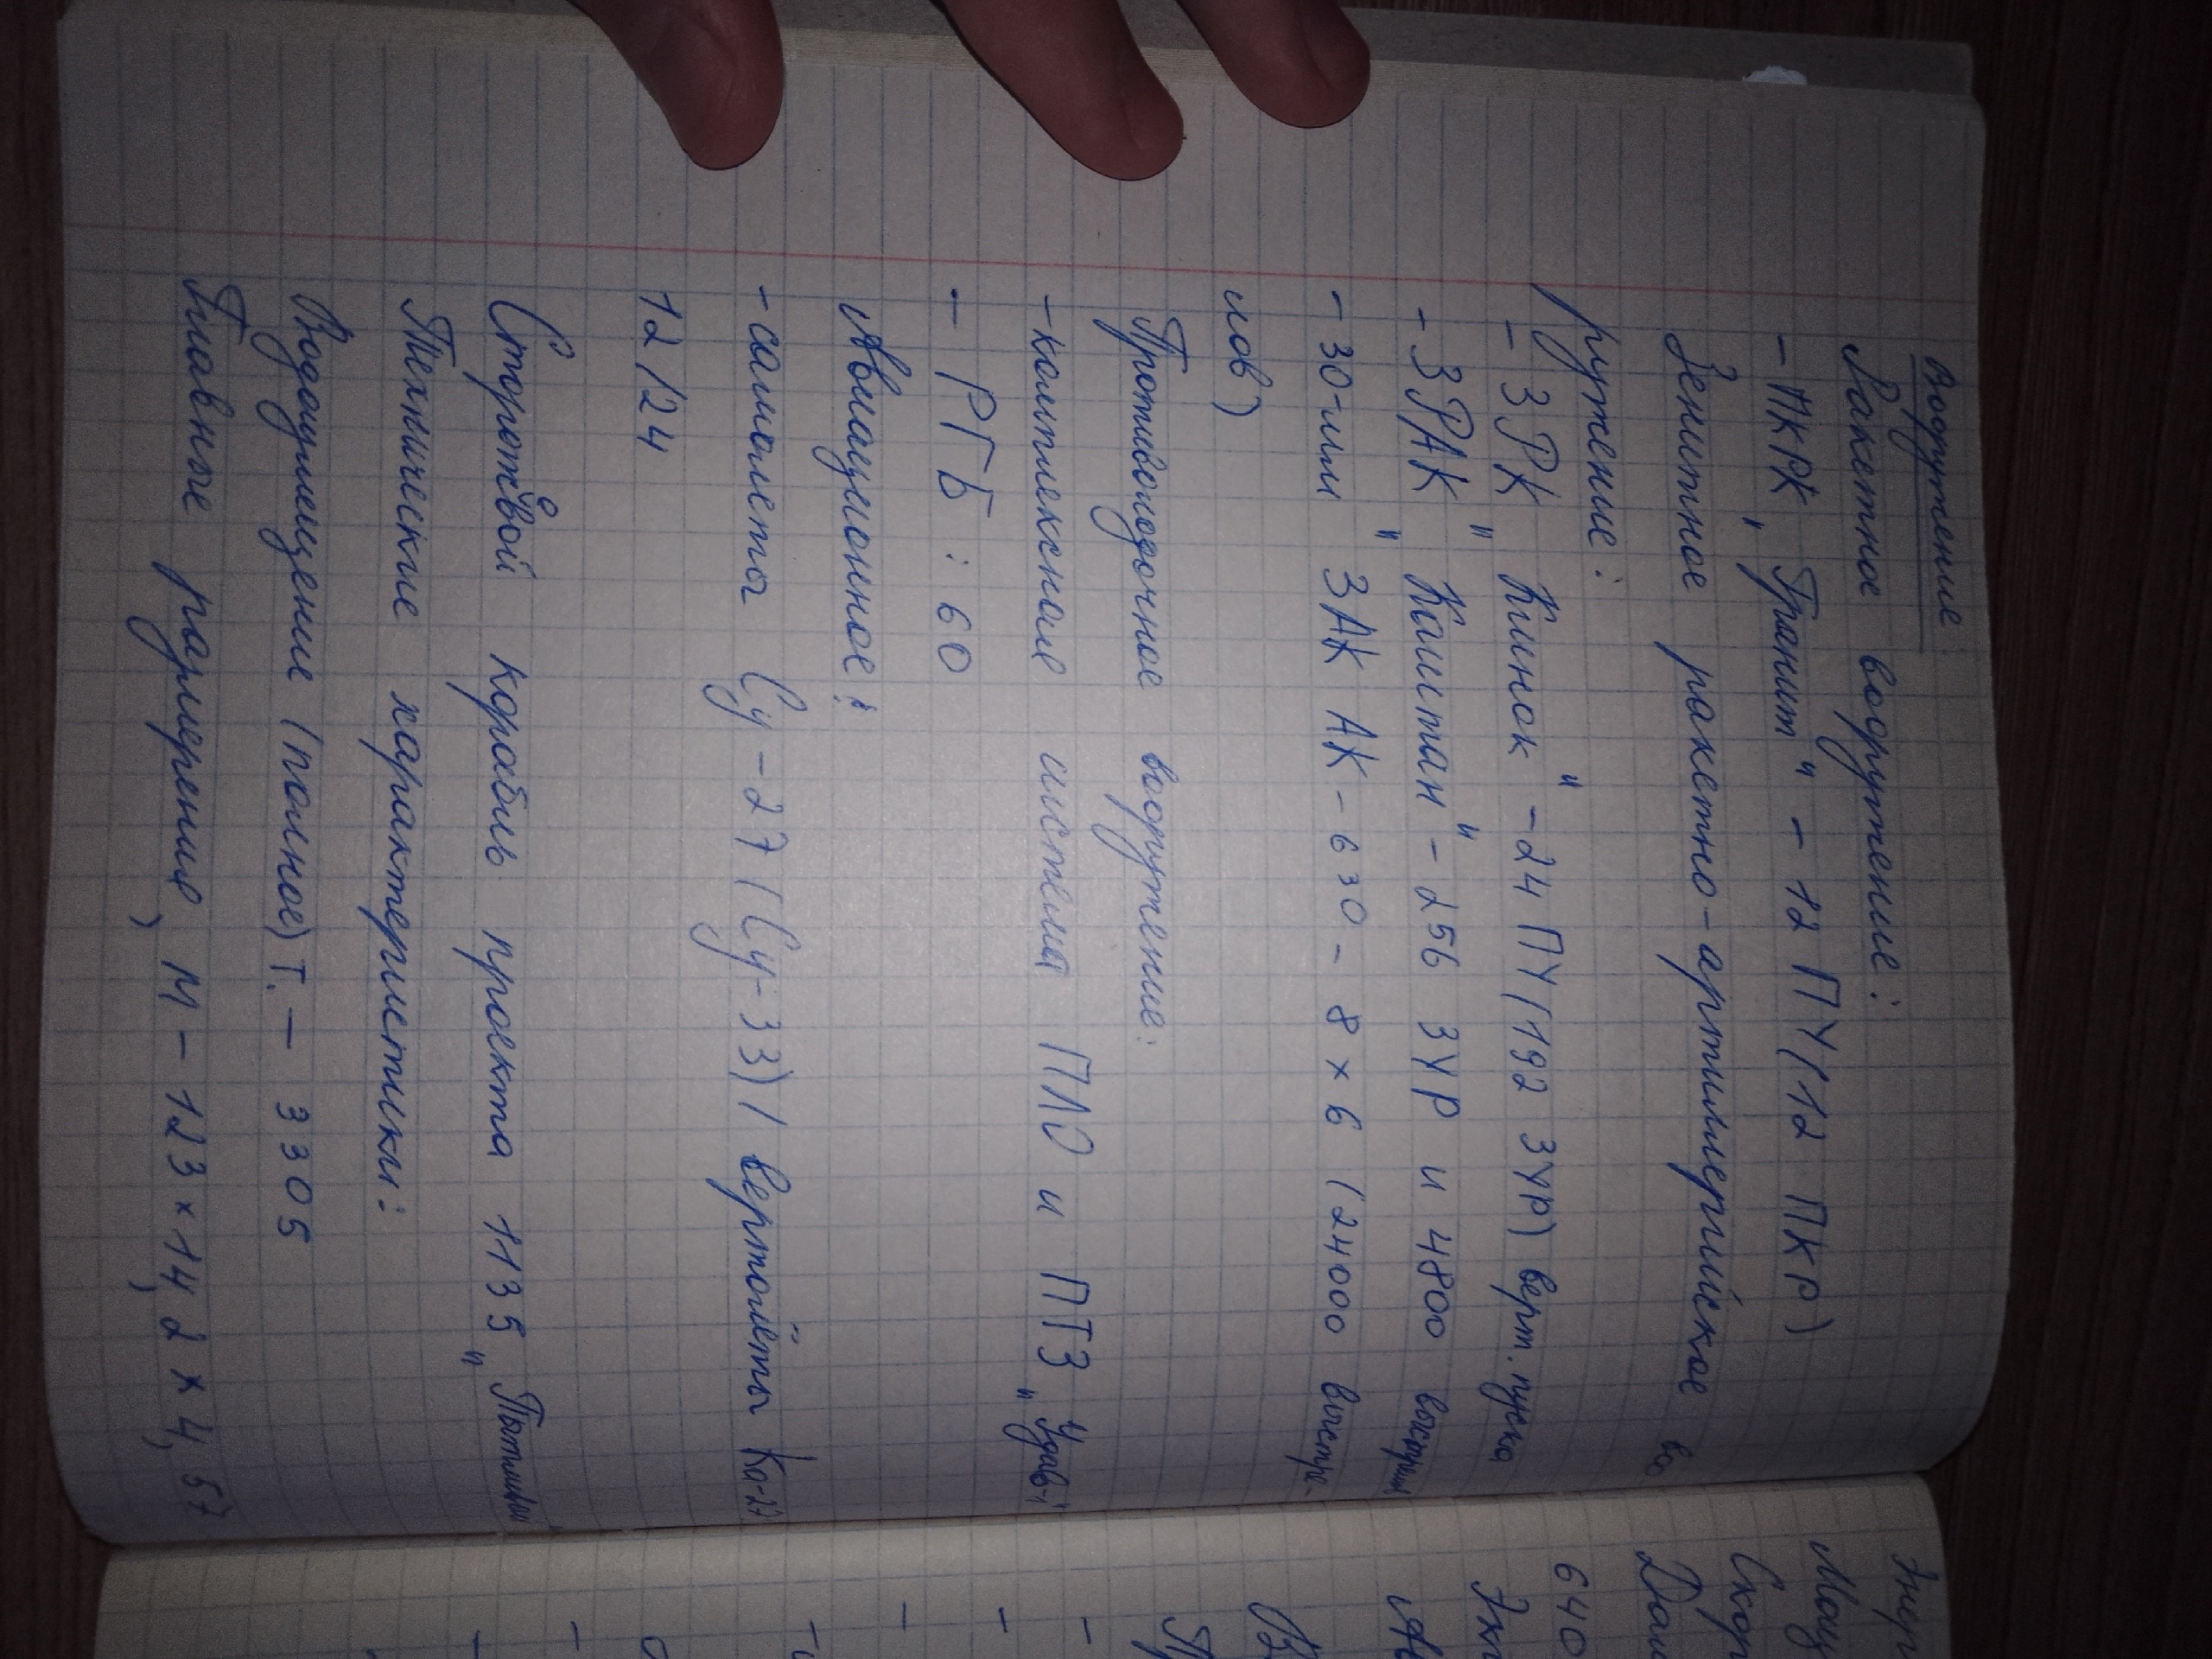 Вооружение
Ракетное вооружение:
- ПКРК „Гранит" - 12 ПУ (12 ПКР)
Зенитное ракетно-артиллерийское во
ружение:
- ЗРК „Клинок" - 24 ПУ (192 ЗУР) верт. пуска
- ЗРАК „Каштан" - 256 ЗУР и 4800
- 30-мм ЗАК АК-630 - 8 x 6 (24000 выстре-
лов)
Противолодочное вооружение:
- комплексные система ПЛО и ПТЗ „Удав-1
- РГБ : 60
Авиационное:
- самолеты Су-27 (Су-33) / вертолёты Ка-27
12/24
Сторожевой корабль проекта 1135 „
Технические характеристики:
Водоизмещение (полное) т. — 3305
Главные размерения, м - 123 x 14,2 x 4,57
Энер
Мощ
Скор
Дал
640
Эк